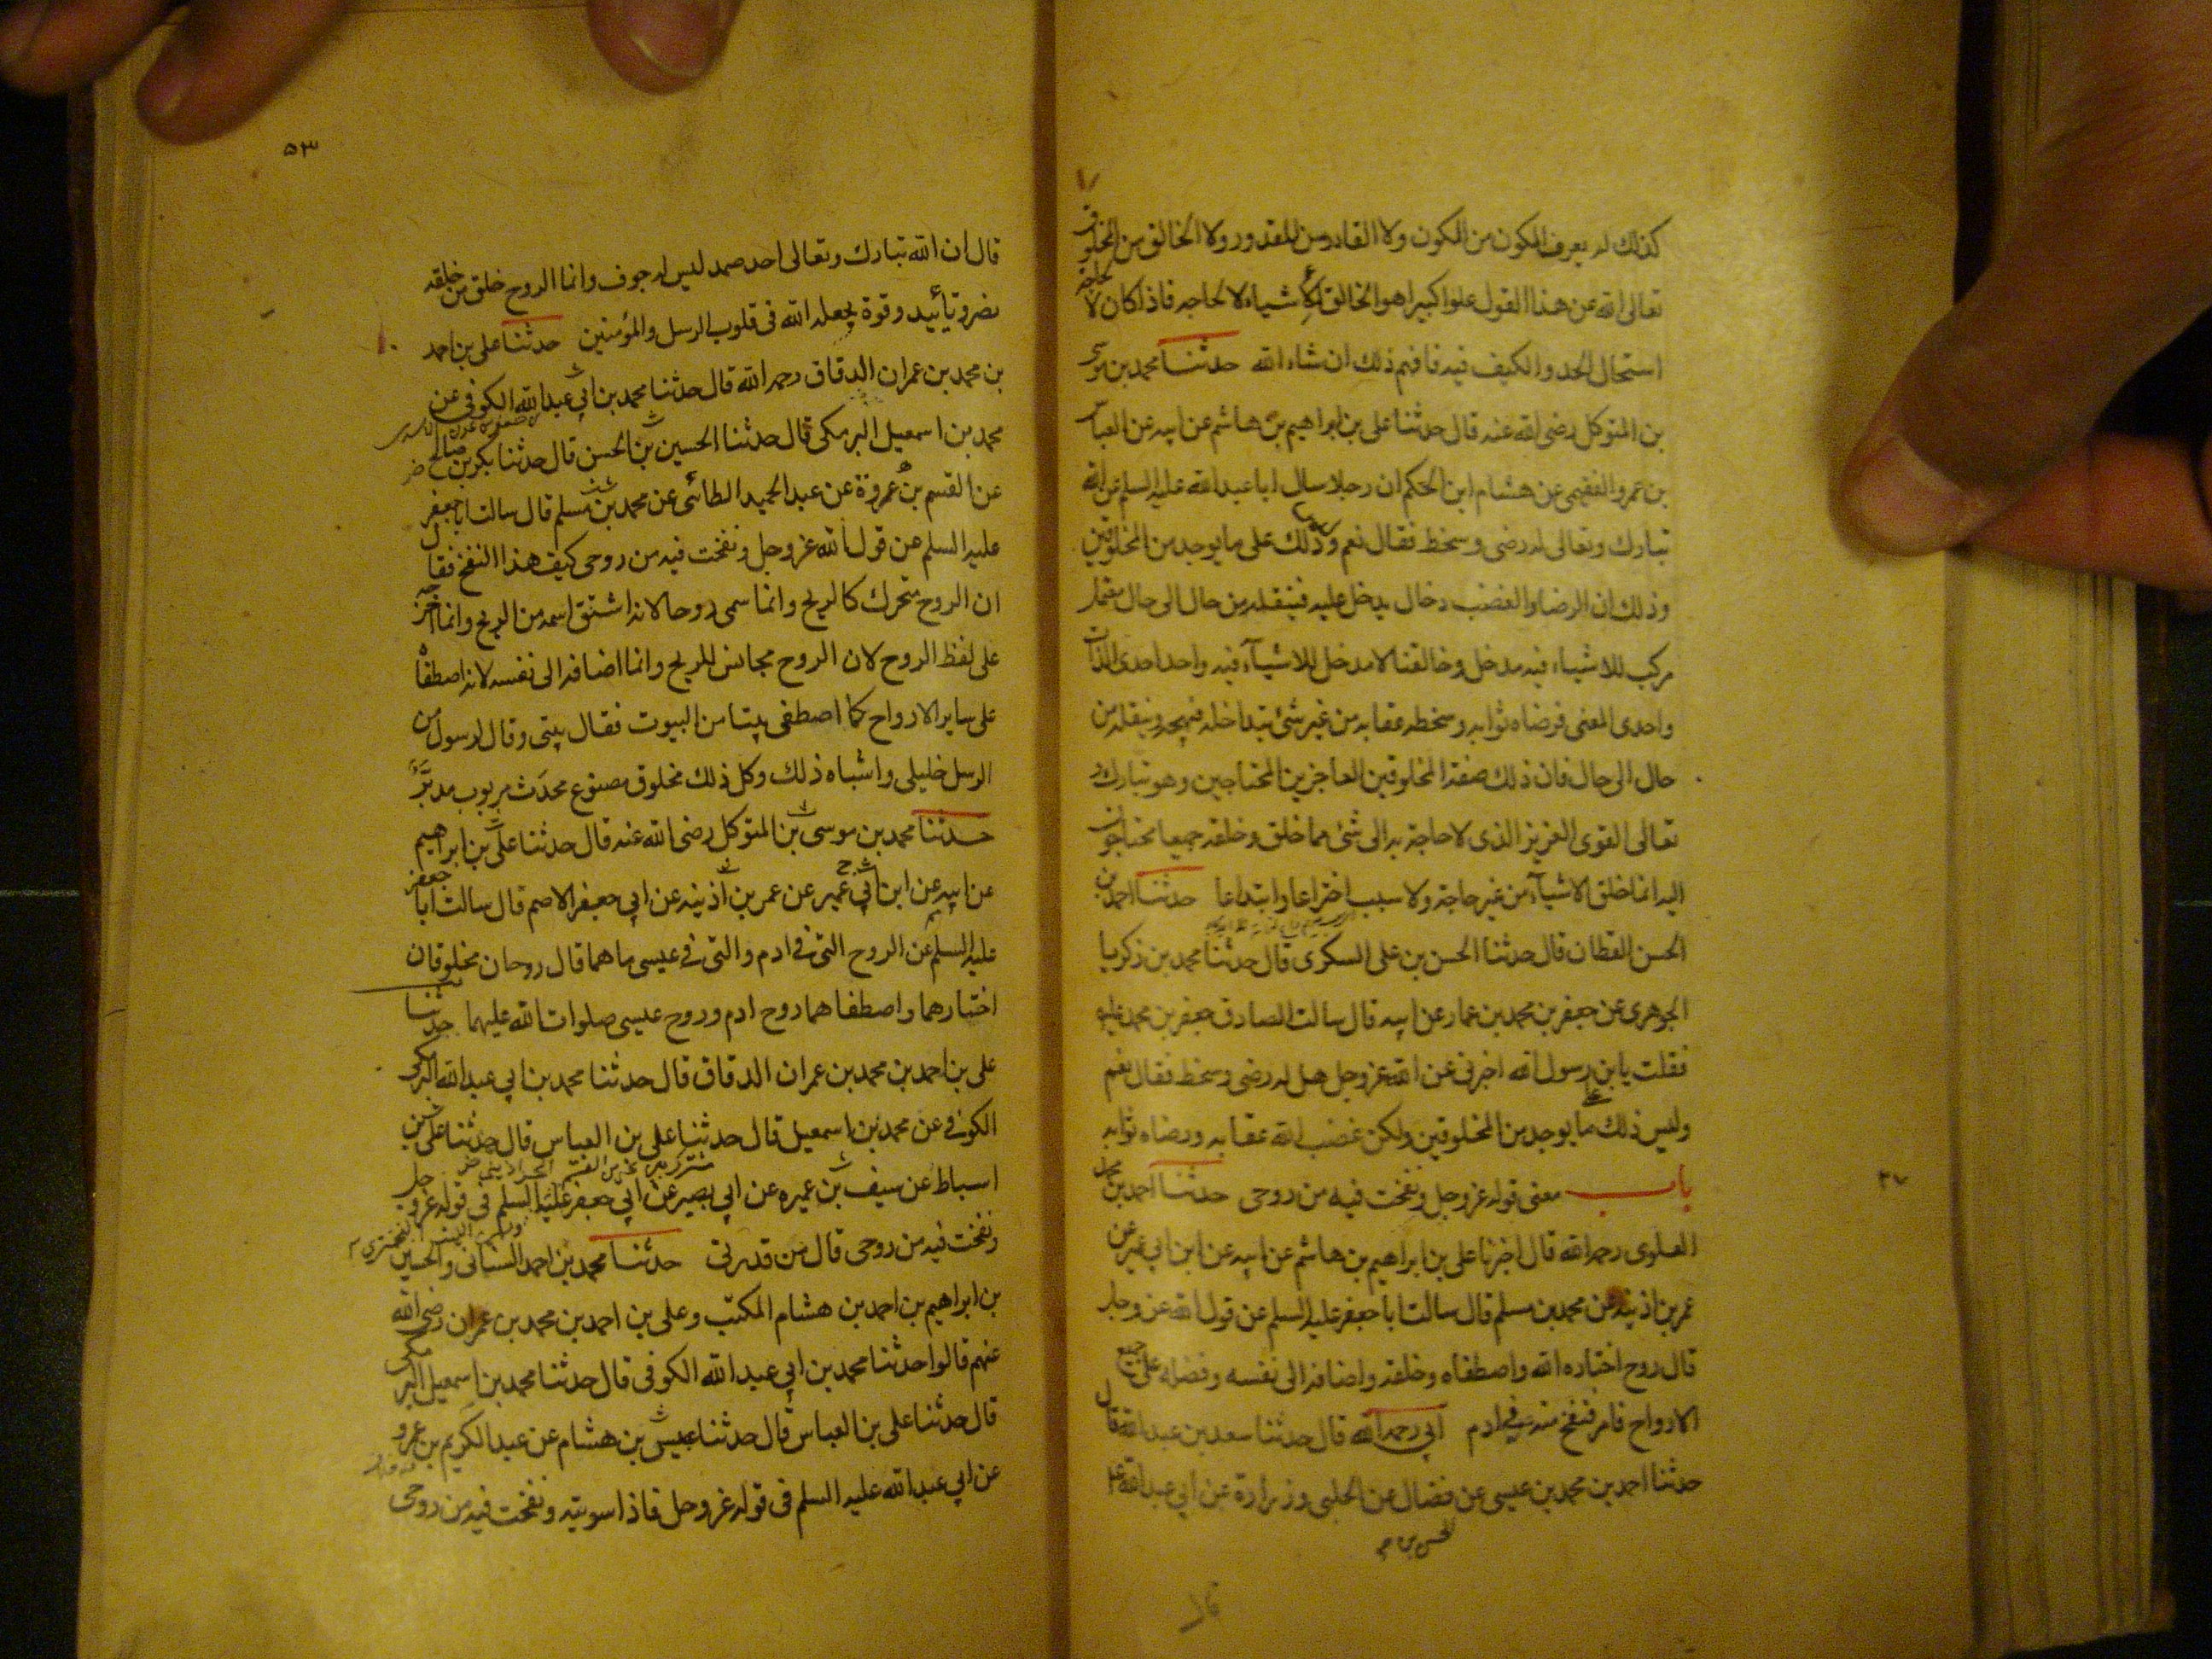 كذلك لم يعرف المكون من المكون ولا القادر من المقدور ولا الخالق من المخلوق
تعالى الله عن هذا القول علوا كبيرا هو الخالق للأشياء لا لحاجه فاذا كان لا لحاجة
استحال الحد والكيف فيه فافهم ذلك ان شاء الله حدثنا محمد بن موسى
بن المتوكل رضى الله عنه قال حدثنا على بن ابراهيم بن هاشم عن ابيه عن العباس
بن عمرو الفقيمى عن هشام ابن الحكم ان رجلا سال ابا عبد الله عليه السلم عن الله
تبارك وتعالى له رضى وسخط فقال نعم وليس ذلك على ما يوجد من المخلوقين
وذلك ان الرضا والغضب دخال يدخل عليه فينقله من حال الى حال معتمل
مركب للاشياء فيه مدخل وخالقنا لا مدخل للاشيآء فيه واحد احدى الذات
واحدى المعنى فرضاه ثوابه وسخطه عقابه من غير شئ يتداخله فيهيجه وينقله من
حال الى حال فان ذلك صفة المخلوقين العاجزين المحتاجين وهو تبارك و
تعالى القوى العزيز الذى لا حاجة به الى شئ مما خلق وخلقه جميعا محتاجون
اليه انما خلق الاشيآء من غير حاجة ولا سبب اختراعا وابتداعا حدثنا احمد بن
الحسن القطان قال حدثنا الحسن بن على السكرى قال حدثنا محمد بن زكريا
الجوهرى عن جعفر بن محمد بن عمار عن ابيه قال سالت الصادق جعفر بن محمد عليه
فقلت يا بن رسول الله اخبرنى عن الله عز وجل هل له رضى وسخط فقال نعم
وليس ذلك على ما يوجد من المخلوقين ولكن غضب الله عقابه ورضاه ثوابه
باب معنى قوله عز وجل ونفخت فيه من روحى حدثنا احمد بن محمد
العلوى رحمه الله قال اخبرنا على بن ابراهيم بن هاشم عن ابيه عن ابن ابي عمير عن
عمر بن اذينه عن محمد بن مسلم قال سالت ابا جعفر عليه السلم عن قول الله عز وجل
قال روح اختاره الله واصطفاه وخلقه واضافه الى نفسه وفضله على جميع
الارواح فامر فنفخ منه في ادم ابي رحمه الله قال حدثنا سعد بن عبد الله قال
حدثنا احمد بن محمد بن عيسى عن فضال عن الحلبى وزرارة عن ابي عبد الله ع
الحسن بن م
٢٧
٥٣
قال ان الله تبارك وتعالى احد صمد ليس له جوف وانما الروح خلق من خلقه
نصر وتأييد وقوة يجعله الله فى قلوب الرسل والمؤمنين حدثنا على بن احمد
بن محمد بن عمران الدقاق رحمه الله قال حدثنا محمد بن ابي عبد الله الكوفى عن
محمد بن اسمعيل البرمكى قال حدثنا الحسين بن الحسن قال حدثنا بكر بن صالح
عن القسم بن عروة عن عبد الحميد الطائى عن محمد بن مسلم قال سالت ابا جعفر
عليه السلم عن قول الله عز وجل ونفخت فيه من روحى كيف هذا النفخ فقال
ان الروح متحرك كالريح وانما سمى روحا لانه اشتق اسمه من الريح وانما اخرجه
على لفظ الروح لان الروح مجانس للريح وانما اضافه الى نفسه لانه اصطفاه
على ساير الارواح كما اصطفى بيتا من البيوت فقال بيتى وقال لرسول من
الرسل خليلى واشباه ذلك وكل ذلك مخلوق مصنوع محدث مربوب مدبر
حدثنا محمد بن موسى بن المتوكل رضى الله عنه قال حدثنا على بن ابراهيم
عن ابيه عن ابن ابي عمير عن عمر بن اذينه عن ابي جعفر الاصم قال سالت ابا جعفر
عليه السلم عن الروح التى في ادم والتى في عيسى ما هما قال روحان مخلوقان
اختارهما واصطفاهما روح ادم وروح عيسى صلوات الله عليهما حدثنا
على بن احمد بن محمد بن عمران الدقاق قال حدثنا محمد بن ابي عبد الله البرمكى
الكوفى عن محمد بن اسمعيل قال حدثنا على بن العباس قال حدثنا على بن
اسباط عن سيف بن عميره عن ابي بصير عن ابي جعفر عليه السلم فى قوله عز وجل
ونفخت فيه من روحى قال من قدرتى حدثنا محمد بن احمد السنانى والحسين
بن ابراهيم بن احمد بن هشام المكتب وعلى بن احمد بن محمد بن عمران رضى الله
عنهم قالوا حدثنا محمد بن ابي عبد الله الكوفى قال حدثنا محمد بن اسمعيل البرمكى
قال حدثنا على بن العباس قال حدثنا عيسى بن هشام عن عبد الكريم بن عمرو
عن ابي عبد الله عليه السلم فى قوله عز وجل فاذا سويته ونفخت فيه من روحى